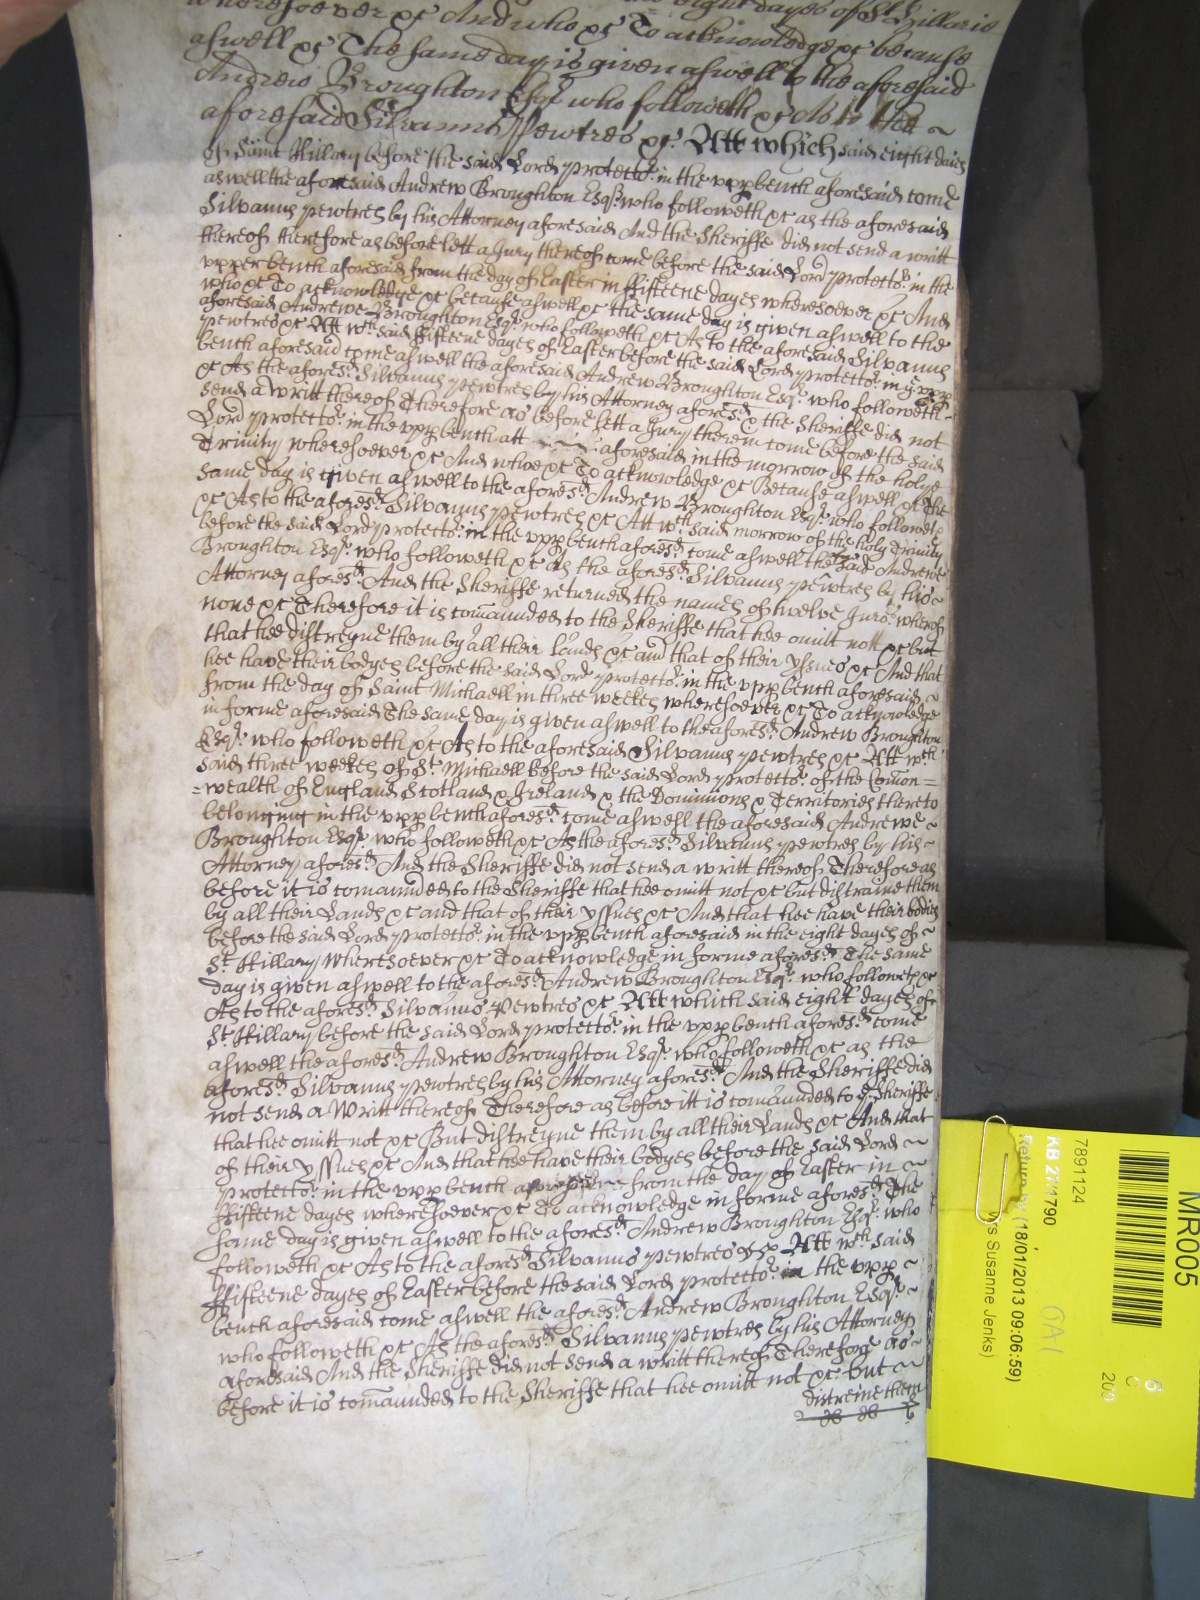 eight dayes of St Hillarie
wheresoever &c And who &c To acknowledge &c because
aswell &c The same day is given aswell to the aforesaid
Andrew Broughton Esqr who followeth &c As to the
aforesaid Silvanus Pewtres &c. Att which said eight daies
of Saint Hillary before the said Lord Protector in the upp bench aforesaid come
aswell the aforesaid Andrew Broughton Esqr. who followeth &c as the aforesaid
Silvanus Pewtres by his Attorney aforesaid And the Sheriffe did not send a writt
thereof therefore as before lett a Jury thereof come before the said Lord Protector. in the
upper bench aforesaid from the day of Easter in ffifteene dayes wheresoever &c And
who &c To acknowledge &c because aswell &c the same day is given aswell to the
aforesaid Andrewe Broughton Esqr. who followeth &c As to the aforesaid Silvanus
Pewtres &c Att wch said ffifteene dayes of Easter before the said Lord Protector. in ye upp
bench aforesaid come aswell the aforesaid Andrew Broughton Esqr. who followeth
&c As the aforesd. Silvanus Pewtres by his Attorney aforesd. & the Sheriffe did not
send a writt thereof Therefore as before lett a Jury therein come before the said
Lord Protector. in the upp bench att aforesaid in the morrow of the holye
Trinity wheresoever &c And whoe &c To acknowledge &c Because aswell &c The
same day is given aswell to the aforesd. Andrew Broughton Esqr. who followeth
&c As to the aforesd. Silvanus Pewtres &c Att wch said morrow of the holy Trinity
before the said Lord Protector. in the upp bench aforesd. come aswell the said Andrewe
Broughton Esqr. who followeth &c As the aforesd. Silvanus Pewtres by his
Attorney aforesd. And the Sheriffe returned the names of twelve Juro. whereof
none &c Therefore it is comaunded to the Sheriffe that hee omitt nott &c but
that hee distreyne them by all their Lands &c and that of their yssues &c And that
hee have their bodyes before the said Lord Protector. in the upp bench aforesaid
from the day of Saint Michaell in three weekes wheresoever &c To acknowledge
in forme aforesaid The same day is given aswell to the aforesd. Andrew Broughton
Esqr. who followeth &c As to the aforesaid Silvanus Pewtres &c Att wch
said three weekes of St. Michaell before the said Lord Protector. of the Comon=
=wealth of England Scotland & Ireland & the Dominions & Territories thereto
belonging in the upp bench aforesd. come aswell the aforesaid Andrewe
Broughton Esqr. who followeth &c As the aforesd. Silvanus Pewtres by his
Attorney aforesd. And the Sheriffe did not send a writt thereof Therefore as
before it is comaunded to the Sheriffe that hee omitt not &c but distraine them
by all their Lands &c and that of their yssues &c And that hee have their bodies
before the said Lord Protector. in the upp bench aforesaid in the eight dayes of
St. Hillary wheresoever &c To acknowledge in forme aforesd. The same
day is given aswell to the aforesd. Andrew Broughton Esqr. who followeth &c
As to the aforesd. Silvanus Pewtres &c Att which said eight dayes of
St. Hillary before the said Lord Protector. in the upp bench aforesd. come
aswell the aforesd. Andrew Broughton Esqr. who followeth &c as the
aforesd. Silvanus Pewtres by his Attorney aforesd. And the Sheriffe did
not send a Writt thereof Therefore as before itt is comaunded to ye Sheriffe
that hee omitt not &c But distreyne them by all their Lands &c And that
of their yssues &c And that hee have their bodyes before the said Lord
Protector. in the upp bench from the day of Easter in
ffifteene dayes wheresoever &c To acknowledge in forme aforesd. The
same day is given aswell to the aforesd. Andrew Broughton Esqr. who
followeth &c As to the aforesd. Silvanus Pewtres &c Att wch said
ffifteene dayes of Easter before the said Lord Protector. in the upp
bench aforesaid come aswell the aforesd. Andrew Broughton Esqr.
who followeth &c As the aforesd. Silvanus Pewtres by his Attorney
aforesaid And the Sheriffe did not send a writt thereof Therefore as
before it is comaunded to the Sheriffe that hee omitt not &c but
distreine them
MR005
7891124
KB 27/1790
Return by (18/01/2013 09:06:59)
Susanne Jenks)
OA1
6
C
203